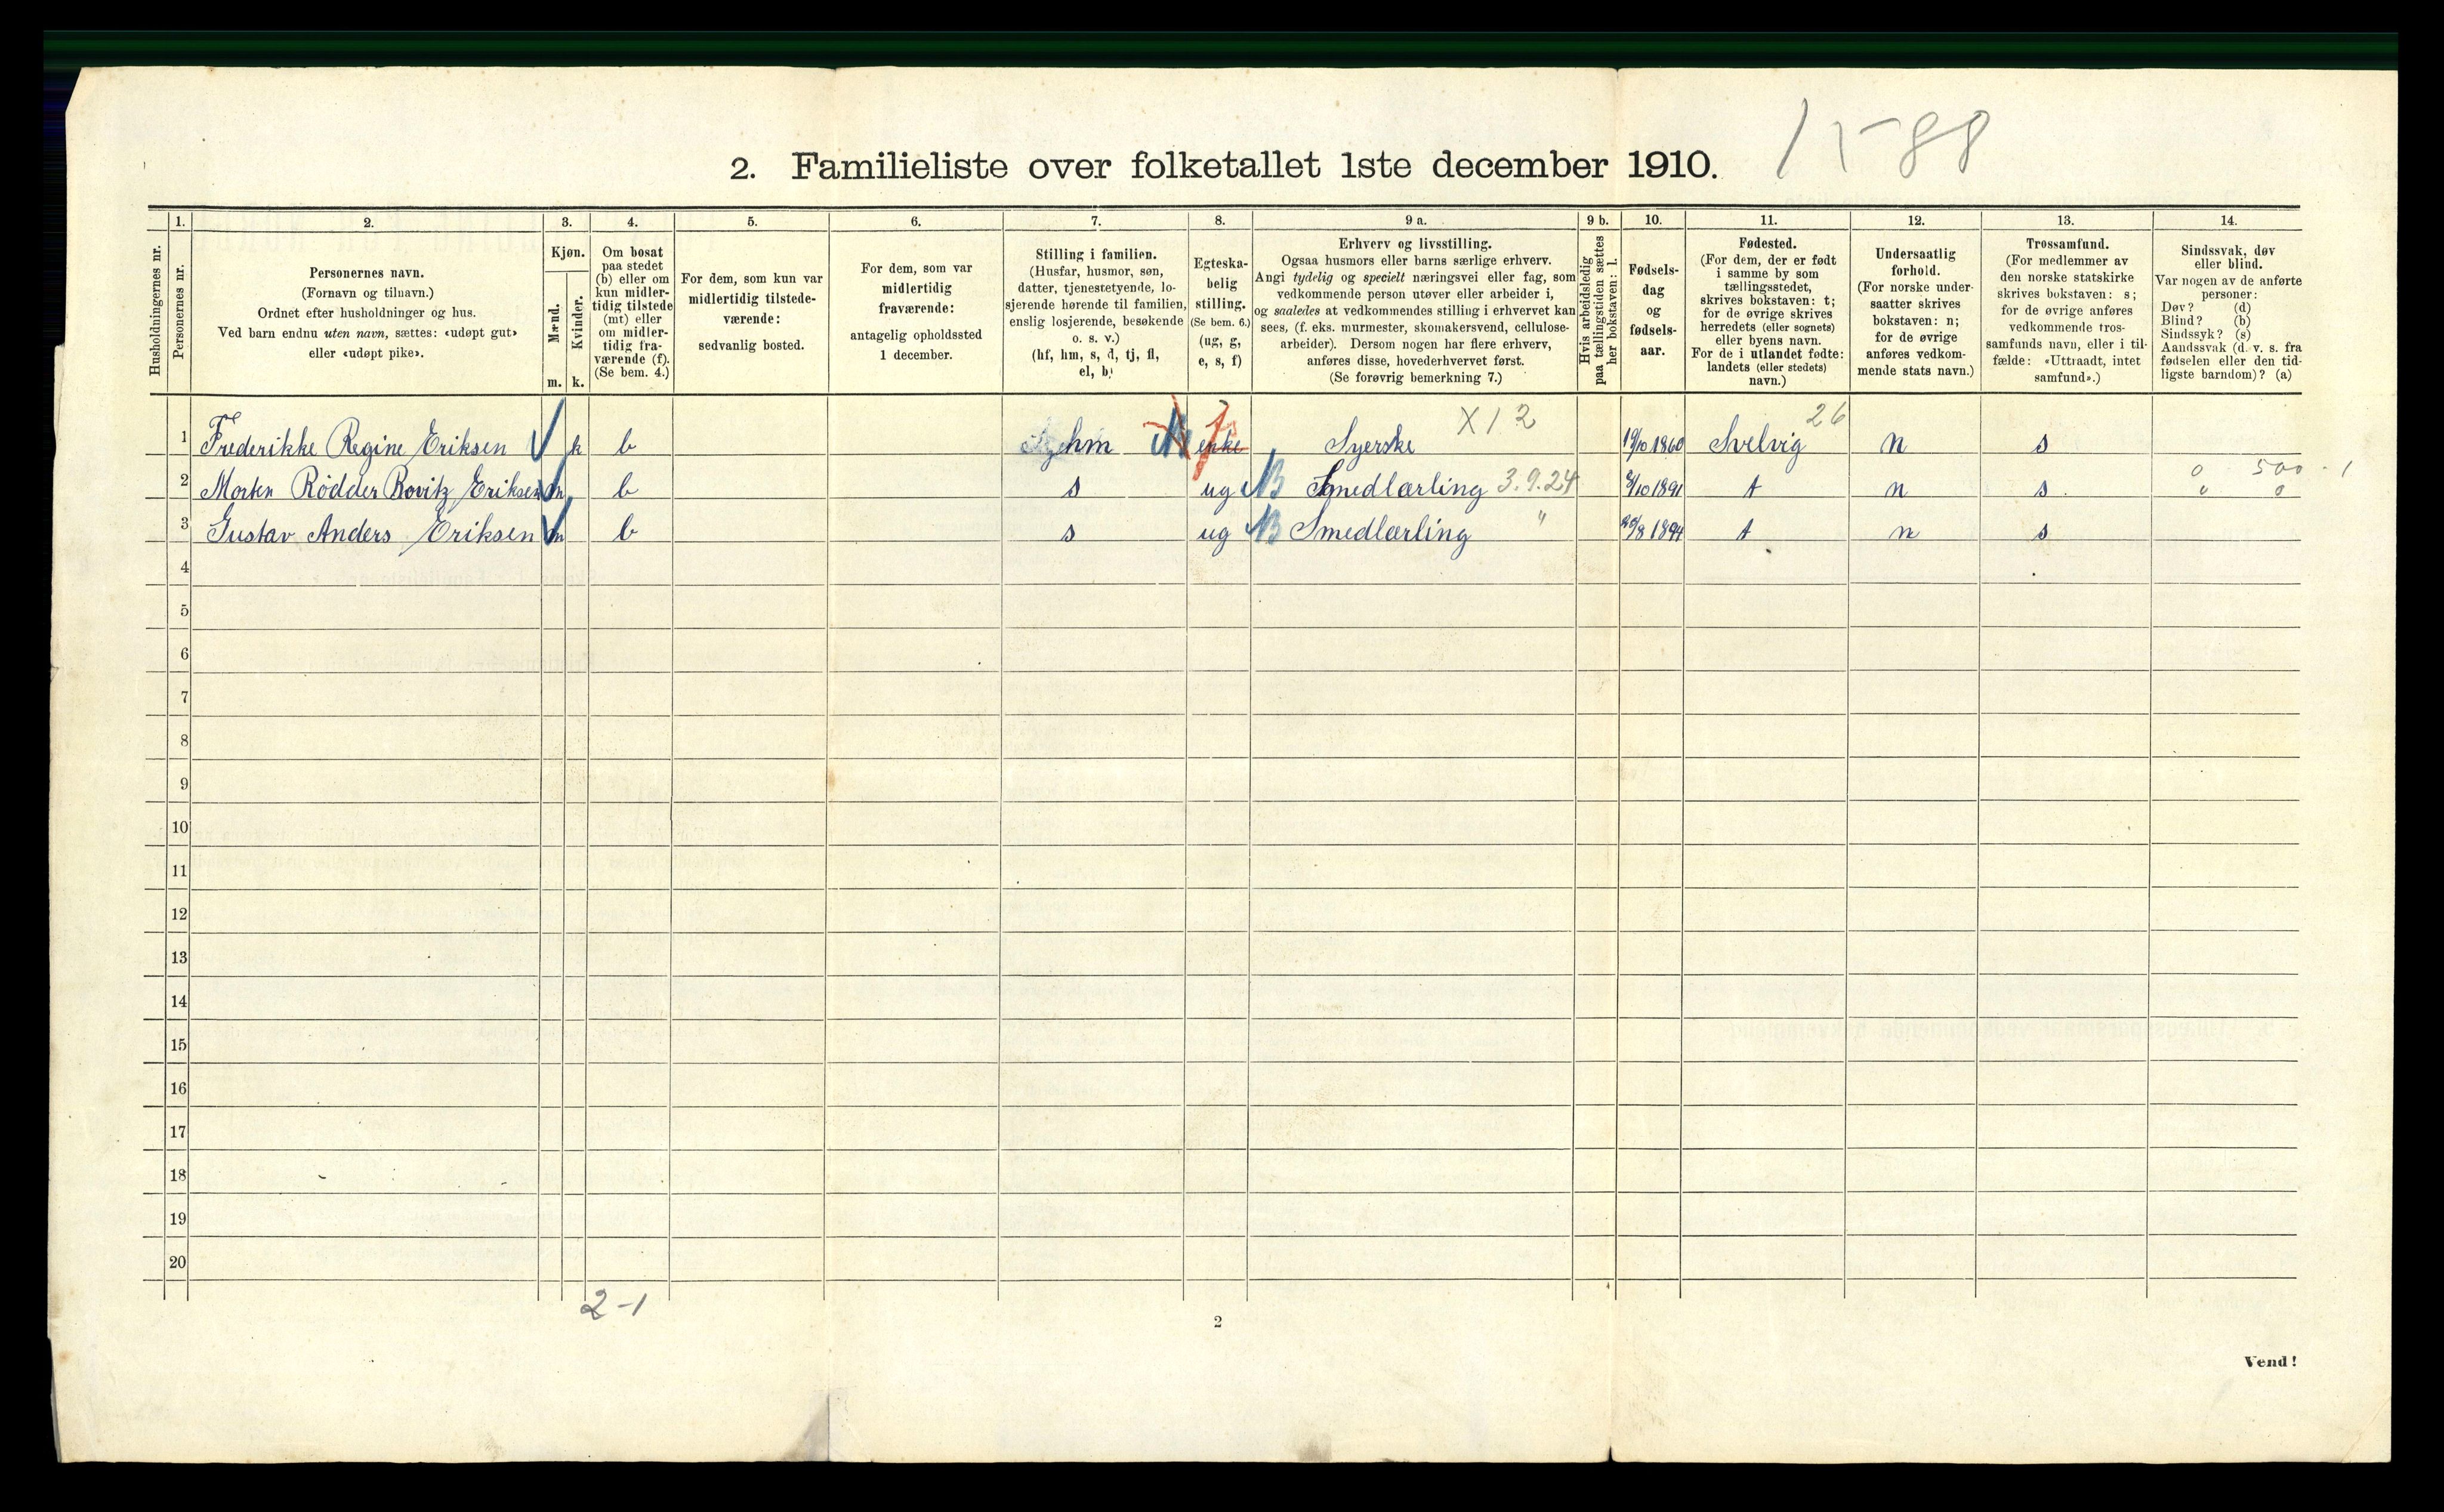 1588
2. Familieliste over folketallet 1ste december 1910.
Husholdningernes nr.
1.
Personernes nr.
2.
Personernes navn.
(Fornavn og tilnavn.)
Ordnet efter husholdninger og hus.
Ved barn endnu uten navn, sættes: «udøpt gut»
eller «udøpt pike».
3.
Kjøn.
Mænd.
Kvinder.
m. k.
4.
Om bosat
paa stedet
(b) eller om
kun midler-
tidig tilstede
(mt) eller
om midler-
tidig fra-
værende (f).
(Se bem. 4.)
5.
For dem, som kun var
midlertidig tilstede-
værende:
sedvanlig bosted.
6.
For dem, som var
midlertidig
fraværende:
antagelig opholdssted
1 december.
7.
Stilling i familien.
(Husfar, husmor, søn,
datter, tjenestetyende, lo-
sjerende hørende til familien,
enslig losjerende, besøkende
o. s. v.)
(hf, hm, s, d, tj, fl,
el, b)
8.
Egteska-
belig
stilling.
(Se bem. 6.)
(ug, g,
e, s, f)
9 a.
Erhverv og livsstilling.
Ogsaa husmors eller barns særlige erhverv.
Angi tydelig og specielt næringsvei eller fag, som
vedkommende person utøver eller arbeider i,
og saaledes at vedkommendes stilling i erhvervet kan
sees, (f. eks. murmester, skomakersvend, cellulose-
arbeider). Dersom nogen har flere erhverv,
anføres disse, hovederhvervet først.
(Se forøvrig bemerkning 7.)
9 b.
Hvis arbeidsledig
paa tællingstiden sættes
her bokstaven: l.
10.
Fødsels-
dag
og
fødsels-
aar.
11.
Fødested.
(For dem, der er født
i samme by som
tællingsstedet,
skrives bokstaven: t;
for de øvrige skrives
herredets (eller sognets)
eller byens navn.
For de i utlandet fødte:
landets (eller stedets)
navn.)
12.
Undersaatlig
forhold.
(For norske under-
saatter skrives
bokstaven: n;
for de øvrige
anføres vedkom-
mende stats navn.)
13.
Trossamfund.
(For medlemmer av
den norske statskirke
skrives bokstaven: s;
for de øvrige anføres
vedkommende tros-
samfunds navn, eller i til-
fælde: «Uttraadt, intet
samfund».)
14.
Sindssvak, døv
eller blind.
Var nogen av de anførte
personer:
Døv? (d)
Blind? (b)
Sindssyk? (s)
Aandssvak (d. v. s. fra
fødselen eller den tid-
ligste barndom)? (a)
1 Frederikke Regine Eriksen k b hm enke Syerske X12 19/10 1860 Svelvig 26 n s
2 Morten Rødder Rovitz Eriksen m b s ug Smedlærling 3.9.24 /10 1891 t n s 0 500 - 1
0 0
3 Gustav Anders Eriksen m b s ug Smedlærling " /8 1894 t n s
4
5
6
7
8
9
10
11
12
13
14
15
16
17
18
19
20
2-1
2
Vend!